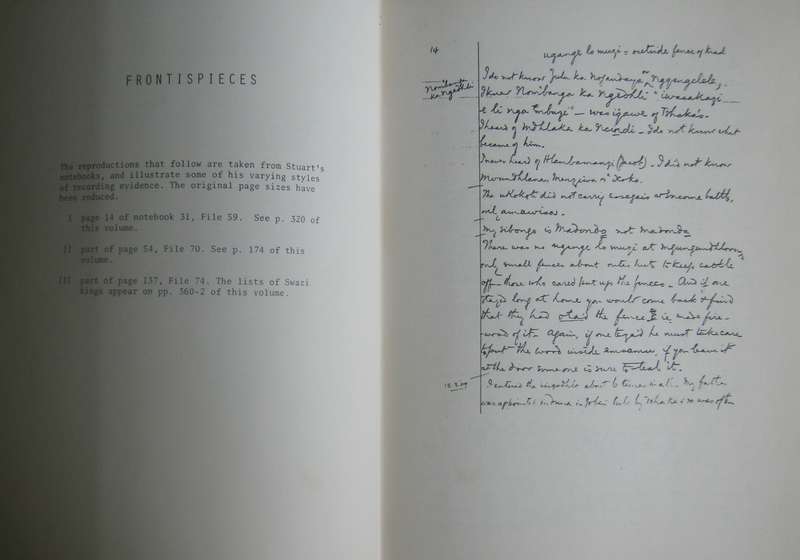 FRONTISPIECES
The reproductions that follow are taken from Stuart's
notebooks, and illustrate some of his varying styles
of recording evidence. The original page sizes have
been reduced.
I page 14 of notebook 31, File 59. See p. 320 of
this volume.
II part of page 54, File 70. See p. 174 of this
volume.
III part of page 137, File 74. The lists of Swazi
kings appear on pp. 360-2 of this volume.
14
ugange lo muzi = outside fence of kraal
I do not know Zulu ka Nogandaya or
I knew Nombanga ka Ngedhli
e li nga - was igawe of Tshaka's.
I heard of Mdhlaka ka Ncidi - I do not know what
became of him.
I never heard of Hlambamanzi (Jacob). I did not know
The uKokoti did not carry assegais when some battle,
only amawisa.
My sibongo is Madondo not Madonda
There was no ugange lo muzi at
only small fences about outer huts to keep cattle
off - those who cared put up the fences. And if one
stayed long at home you would come back & find
that they had the fence & i.e. made fire-
wood of it. Again, if one he must take care
to put the wood inside, if you leave it
at the door someone is sure to steal it.
I entered the about 6 times in all. My father
was appointed induna in by Tshaka & so was often